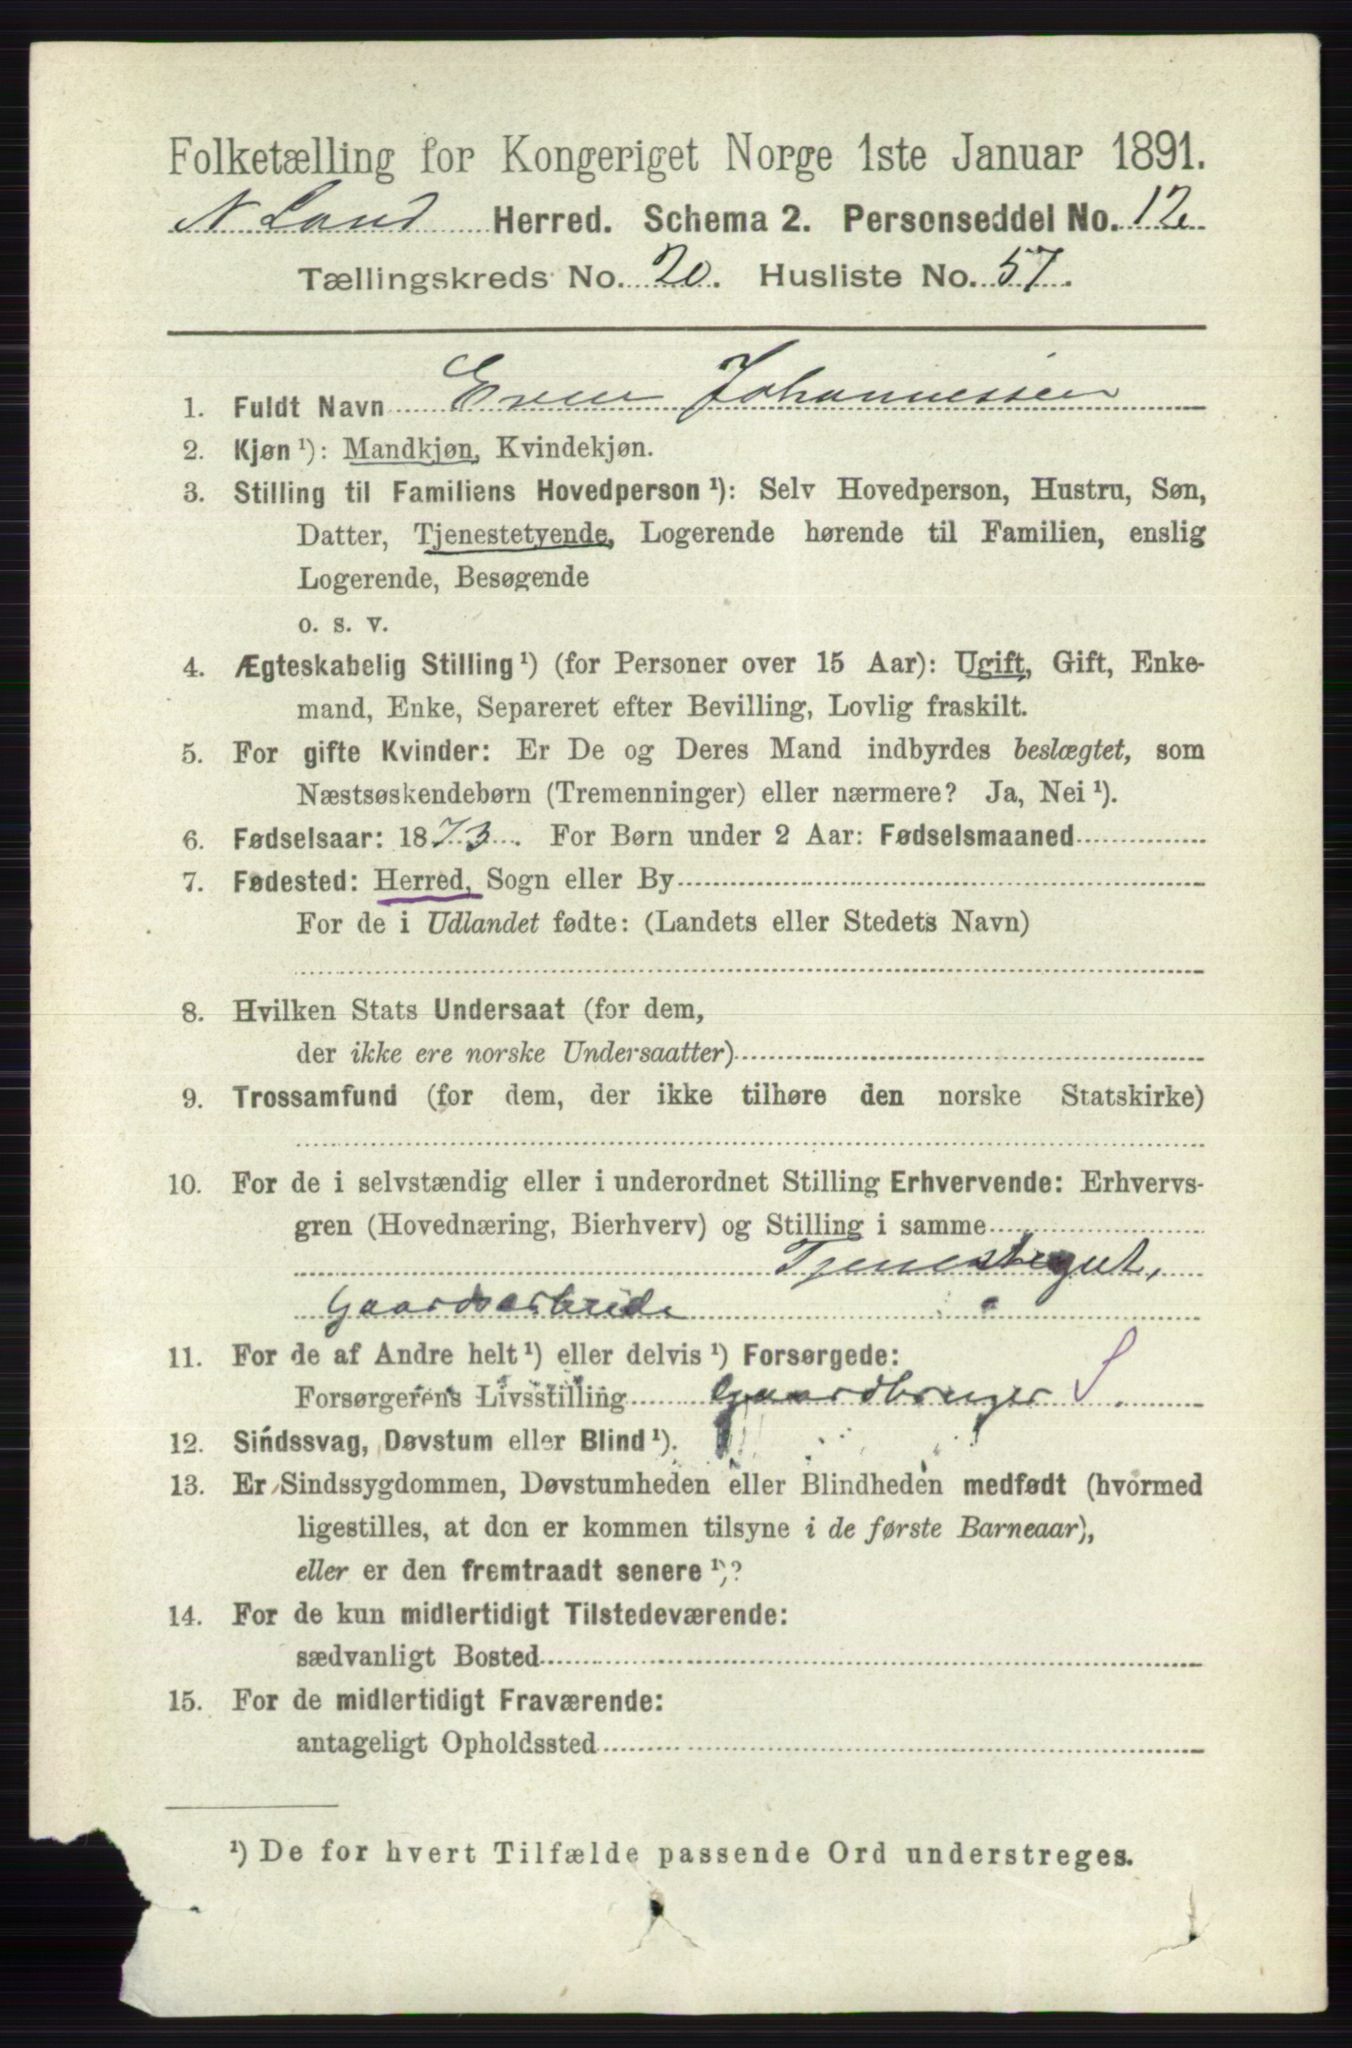 Folketælling for Kongeriget Norge 1ste Januar 1891.
N Land Herred. Schema 2. Personseddel No. 12
Tællingskreds No. 20. Husliste No. 57.
1. Fuldt Navn Even Johannessen
2. Kjøn ¹): Mandkjøn, Kvindekjøn.
3. Stilling til Familiens Hovedperson ¹): Selv Hovedperson, Hustru, Søn,
Datter, Tjenestetyende, Logerende hørende til Familien, enslig
Logerende, Besøgende
o. s. v.
4. Ægteskabelig Stilling ¹) (for Personer over 15 Aar): Ugift, Gift, Enke-
mand, Enke, Separeret efter Bevilling, Lovlig fraskilt.
5. For gifte Kvinder: Er De og Deres Mand indbyrdes beslægtet, som
Næstsøskendebørn (Tremenninger) eller nærmere? Ja, Nei ¹).
6. Fødselsaar: 1873. For Børn under 2 Aar: Fødselsmaaned
7. Fødested: Herred, Sogn eller By
For de i Udlandet fødte: (Landets eller Stedets Navn)
8. Hvilken Stats Undersaat (for dem,
der ikke ere norske Undersaatter)
9. Trossamfund (for dem, der ikke tilhøre den norske Statskirke)
10. For de i selvstændig eller i underordnet Stilling Erhvervende: Erhvervs-
gren (Hovednæring, Bierhverv) og Stilling i samme
Tjenestegut,
Gaardsarbeide
11. For de af Andre helt ¹) eller delvis ¹) Forsørgede:
Forsørgerens Livsstilling Gaardbruger S
12. Sindssvag, Døvstum eller Blind ¹).
13. Er Sindssygdommen, Døvstumheden eller Blindheden medfødt (hvormed
ligestilles, at den er kommen tilsyne i de første Barneaar),
eller er den fremtraadt senere ¹)?
14. For de kun midlertidigt Tilstedeværende:
sædvanligt Bosted
15. For de midlertidigt Fraværende:
antageligt Opholdssted
¹) De for hvert Tilfælde passende Ord understreges.